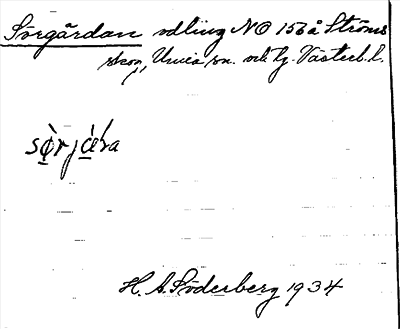 Sörgårdan odling NO 156 å Ströms
skog, Umeå sn. och tg. Västerb. l.
sö̀rjá̤ɽa
H. A. Söderberg 1934